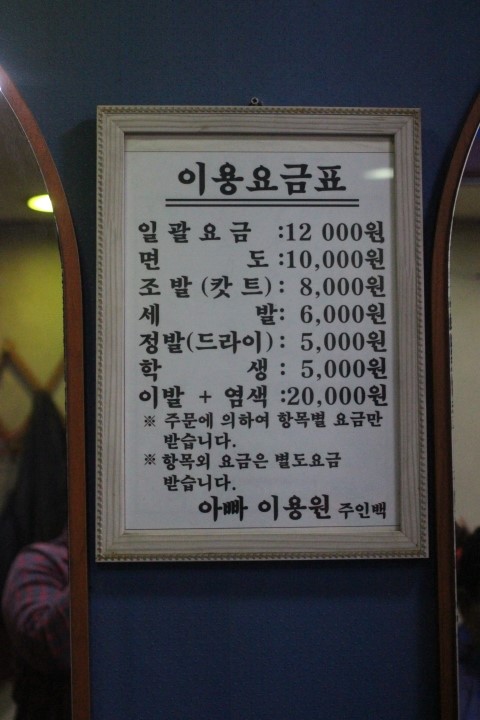 이용요금표
일괄요금 :12 000원
면 도:10,000원
조발(캇트): 8,000원
세 발: 6,000원
정발(드라이): 5,000원
학 생: 5,000원
이발 + 염색 :20,000원
※ 주문에 의하여 항목별 요금만
받습니다.
※ 항목외 요금은 별도요금
받습니다.
아빠 이용원 주인백